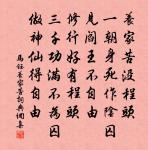 養家苦没程頭
一朝身死作陰囚
見閻王不自由
修行好有程頭
三千功滿不為囚
做神仙得自由
馬鈺養家苦詞典網集